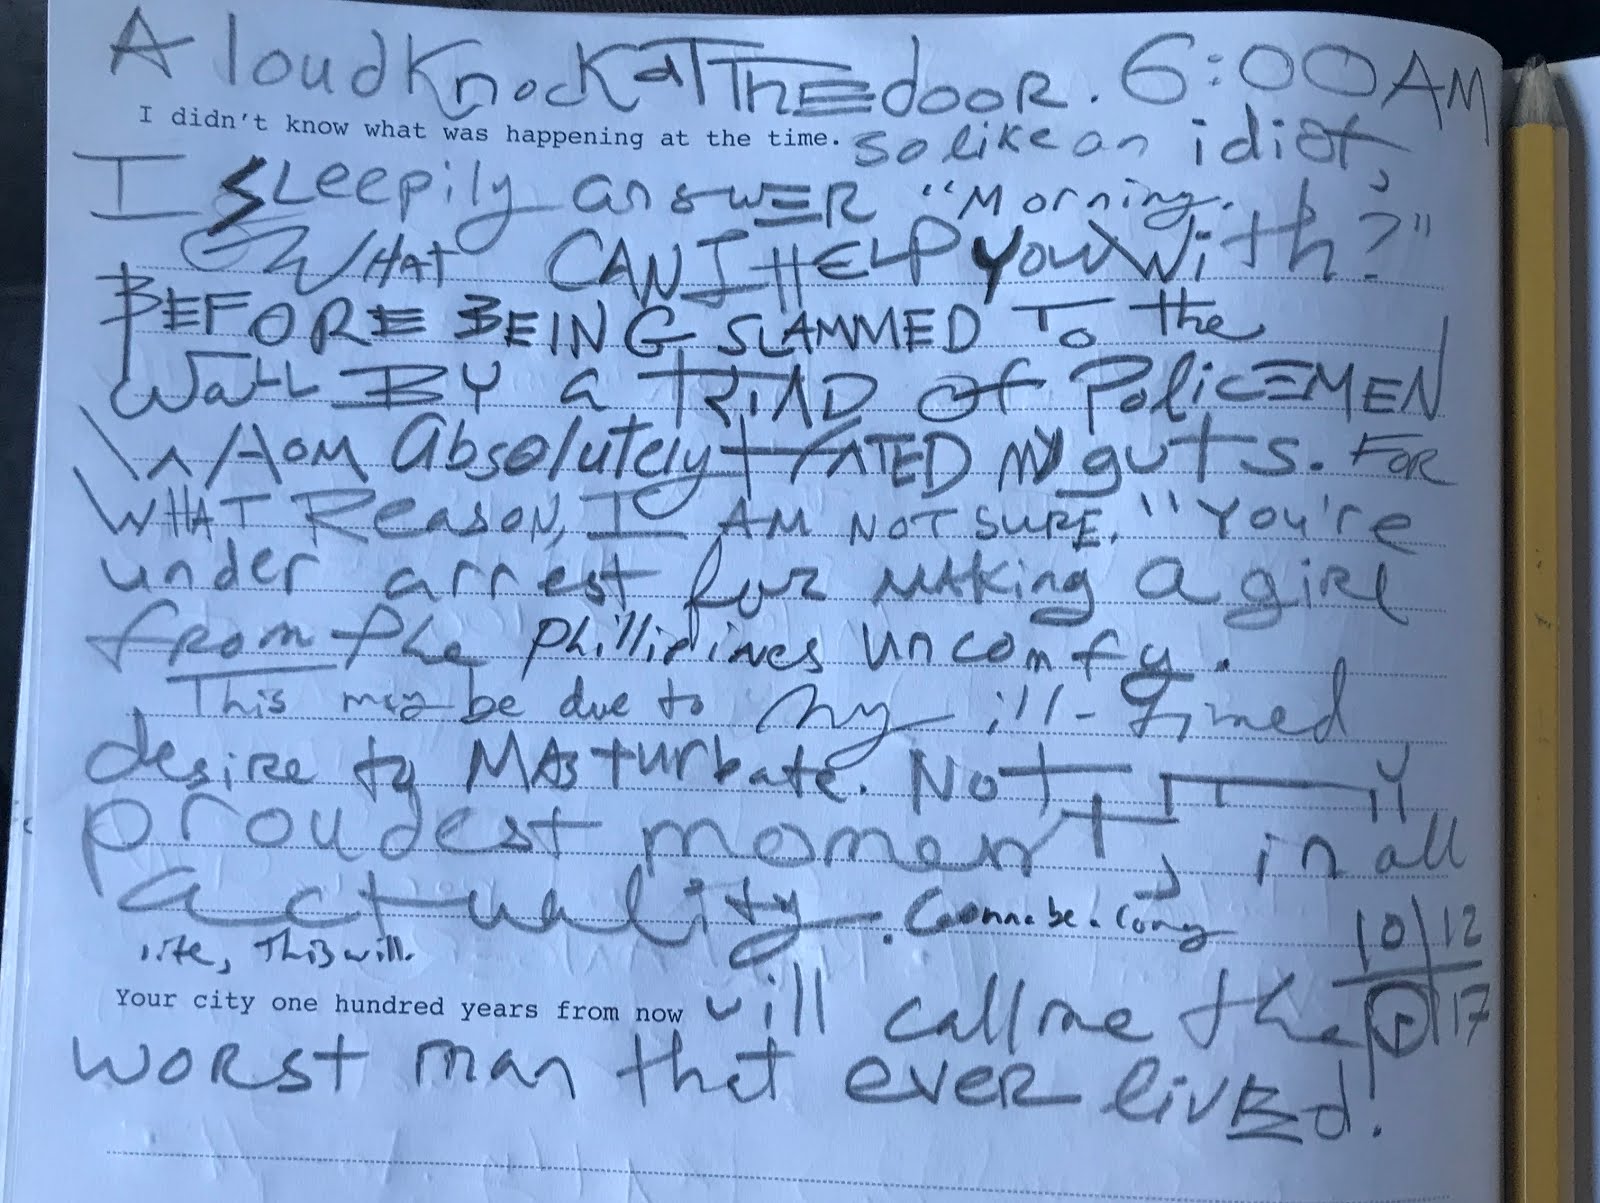 A loud Knock at The door. 6:00 AM
I didn't know what was happening at the time. so like an idiot,
I sleepily answer "Morning.
What CAN I HELP you With?"
BEFORE BEING SLAMMED To the
Wall BY a TRIAD of PoliCEMEN
WHOM Absolutely HATED MY guts. FOR
WHAT Reason, I AM NOT SURE. "You're
under arrest for MAKing a giRl
from the Phillipines uncomfy.
This may be due to my ill-timed
desire to MAsturbate. Not
proudest moment, in all
actuality. Gonna be. Cong
10 12
This will.
Your city one hundred years from now will call me the
17
worst man that ever livEd!